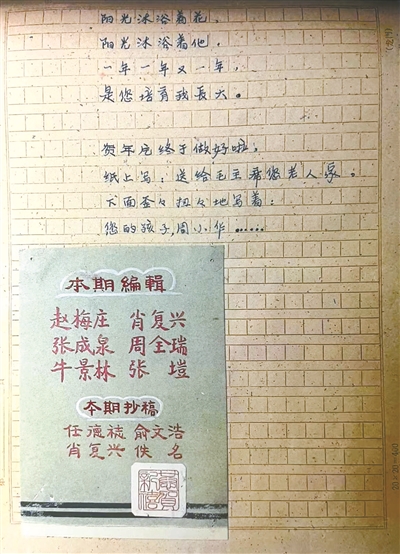 阳光沐浴着花，
阳光沐浴着他，
一年一年又一年，
是您培育我长大。
贺年片终于做好啦，
纸上写：送给毛主席您老人家；
下面歪々扭々地写着：
您的孩子，周小华……
本期編輯
赵梅庄 肖复兴
张成泉 周全瑞
牛景林 张 塏
本期抄稿
任德祾 俞文浩
肖复兴 佚名
恭賀
新禧